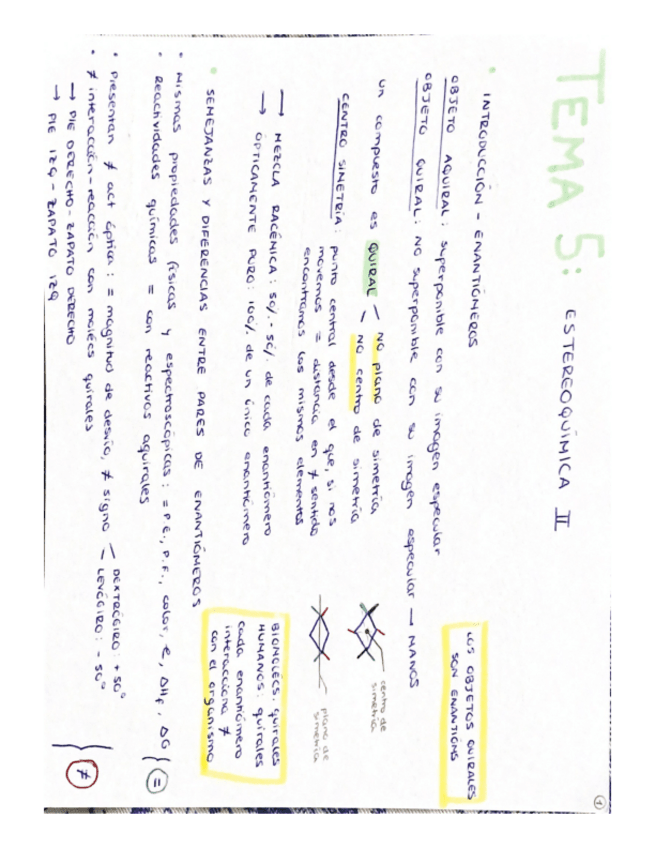 ①
TEMA 5: ESTEREOQUÍMICA II
• INTRODUCCIÓN - ENANTIÓMEROS
OBJETO AQUIRAL: superponible con su imagen especular
OBJETO QUIRAL: NO superponible con su imagen especular → MANOS
LOS OBJETOS QUIRALES
SON ENANTIOMS
un compuesto es QUIRAL
NO plano de simetría
NO centro de simetría
CENTRO SIMETRÍA: punto central desde el que, si nos
movemos = distancia en ≠ sentido
encontramos los mismos elementos
centro de
simetría
plano de
simetría
→ MEZCLA RACÉMICA: 50%-50% de cada enantiómero
→ ÓPTICAMENTE PURO: 100% de un único enantiómero
BIOMOLÉCS. quirales
HUMANOS: quirales
cada enantiómero
interacciona ≠
con el organismo
• SEMEJANZAS Y DIFERENCIAS ENTRE PARES DE ENANTIÓMEROS
• Mismas propiedades físicas y espectroscópicas: = P.E., P.F., color, ρ, ΔHf, ΔG
• Reactividades químicas = con reactivos aquirales
=
• Presentan ≠ act óptica: = magnitud de desvío, ≠ signo
DEXTRÓGIRO: +50°
LEVÓGIRO: -50°
• ≠ interacción-reacción con molécs quirales
→ PIE DERECHO - ZAPATO DERECHO
→ PIE IZQ - ZAPATO IZQ
≠